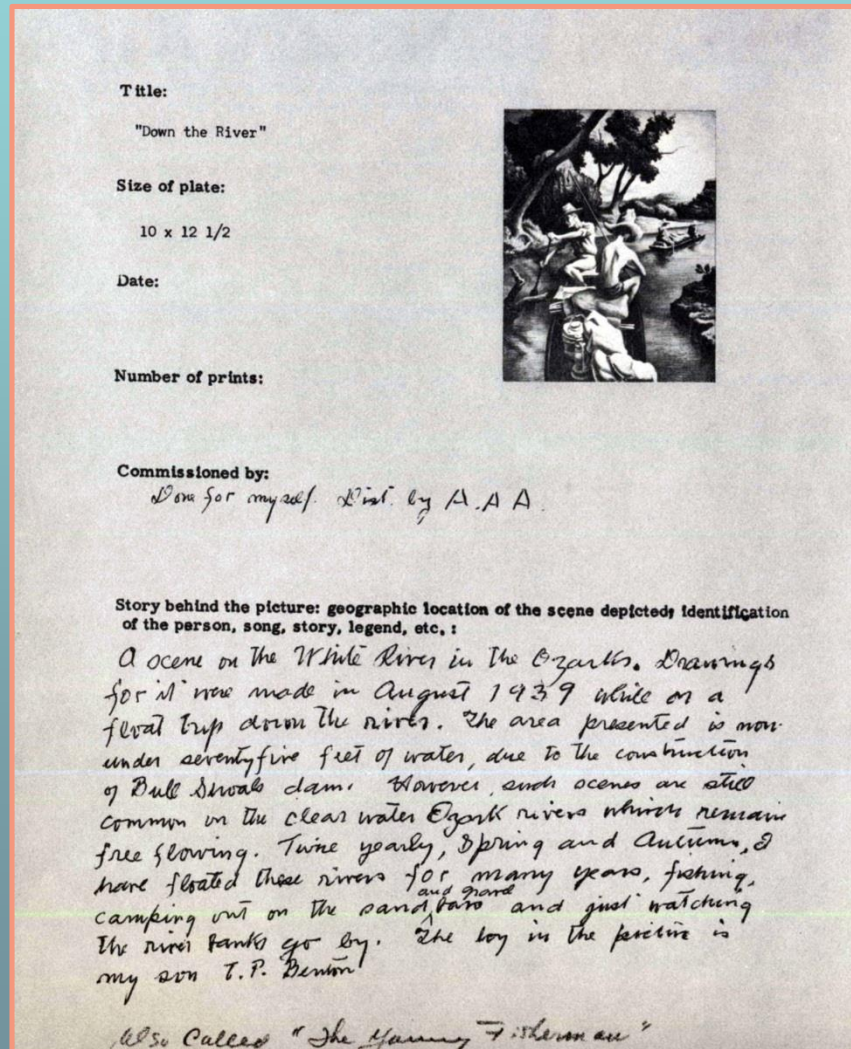 Title:
"Down the River"
Size of plate:
10 x 12 1/2
Date:
Number of prints:
Commissioned by:
Done for myself. Dist. by A.A.A.
Story behind the picture: geographic location of the scene depicted; identification
of the person, song, story, legend, etc.:
A scene on the White River in the Ozarks. Drawings
for it were made in August 1939 while on a
float trip down the river. The area presented is now
under seventyfive feet of water, due to the construction
of Bull Shoals dam. However, such scenes are still
common on the clear water Ozark rivers which remain
free flowing. Twice yearly, Spring and Autumn, I
have floated these rivers for many years, fishing,
camping out on the sand and gravel bars and just watching
the river banks go by. The boy in the picture is
my son T.P. Benton
Also Called "The Young Fisherman"